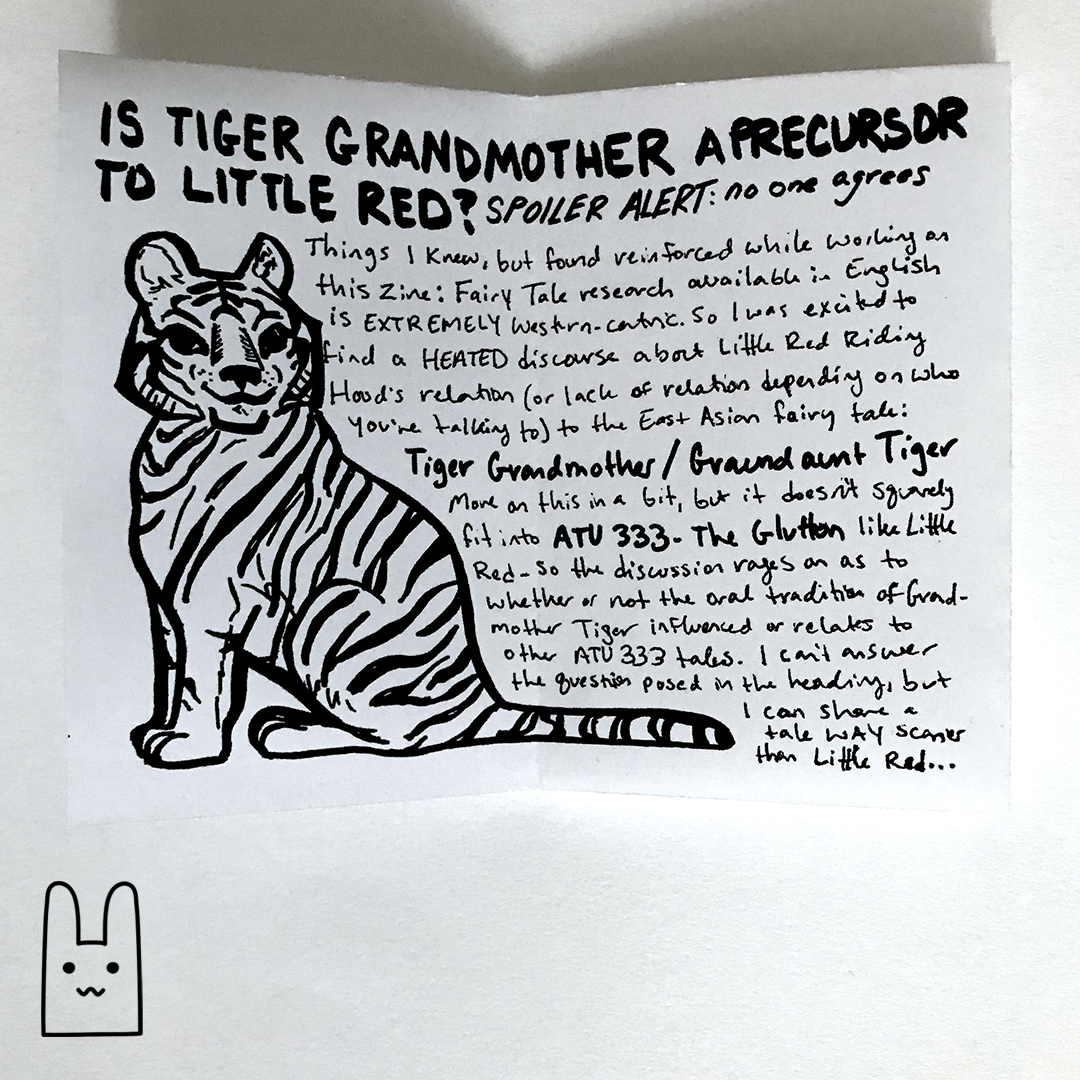 IS TIGER GRANDMOTHER A PRECURSOR
TO LITTLE RED? SPOILER ALERT: no one agrees
Things I Knew, but found reinforced while working on
this zine: Fairy Tale research available in English
is EXTREMELY Western-centric. So I was excited to
find a HEATED discourse about Little Red Riding
Hood's relation (or lack of relation depending on who
you're talking to) to the East Asian fairy tale:
Tiger Grandmother / Graundaunt Tiger
More on this in a bit, but it doesn't squarely
fit into ATU 333- The Glutton like Little
Red - So the discussion rages on as to
whether or not the oral tradition of Grand-
mother Tiger influenced or relates to
other ATU 333 tales. I can't answer
the question posed in the heading, but
I can share a
tale WAY scarier
than Little Red...